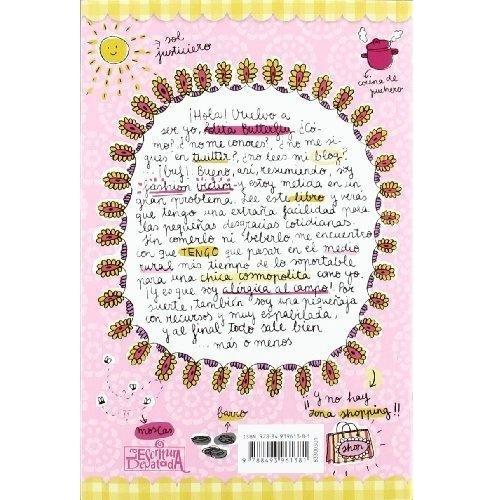 sol
justiciero
cocina de
puchero
¡Hola! Vuelvo a
ser yo, Adita Butterfly. ¿Có-
mo? ¿no me conoces?, ¿no me si-
gues en twitter?, ¿no lees mi blog?,
¡buf! Bueno, así, resumiendo, soy
fashion victim y estoy metida en un
gran problema. Lee este libro y verás
que tengo una extraña facilidad para
las pequeñas desgracias cotidianas.
Sin comerlo ni beberlo, me encuentro
con que TENGO que pasar en el medio
rural más tiempo de lo soportable
para una chica cosmopolita como yo.
¡Y es que soy alérgica al campo! Por
suerte, también soy una pequeñaja
con recursos y muy espabilada,
y al final todo sale bien
... más o menos
moscas
barro
¡¡ y no hay
zona shopping!!
shop
La Escritura
Desatada
ISBN 978-84-939613-8-1
9 788493 961381